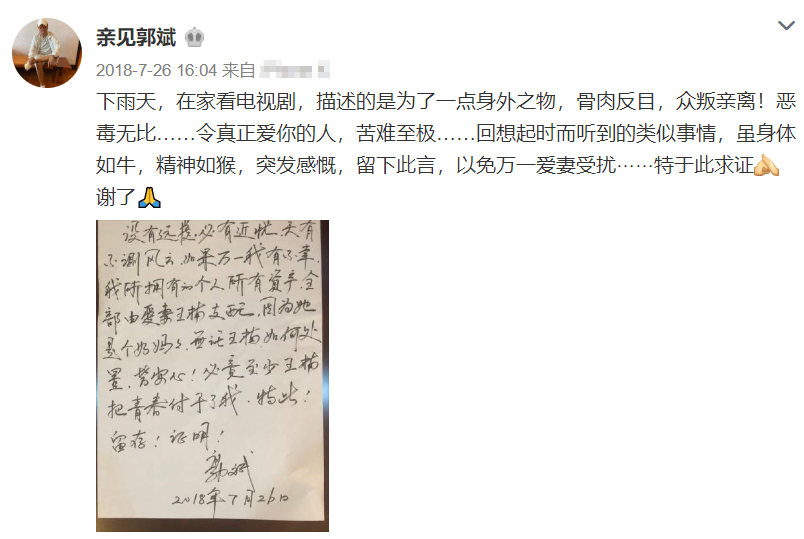 亲见郭斌
2018-7-26 16:04 来自
下雨天，在家看电视剧，描述的是为了一点身外之物，骨肉反目，众叛亲离！恶
毒无比……令真正爱你的人，苦难至极……回想起时而听到的类似事情，虽身体
如牛，精神如猴，突发感慨，留下此言，以免万一爱妻受扰……特于此求证🙏🏻
谢了🙏
没有远虑，必有近忧，天有
不测风云，如果万一我有不幸，
我所拥有的个人所有资产，全
部由爱妻王楠支配，因为她
是个好妈妈，无论王楠如何处
置，皆安心！必竟至少王楠
把青春付于了我，特此！
留存！证明！
郭斌
2018年7月26日